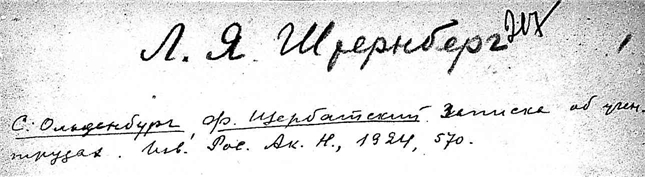 Л. Я. Штернберг
С. Ольденбург, Ф. Щербатский. Записка об учен.
трудах. Изв. Рос. Ак. Н., 1924, 570.